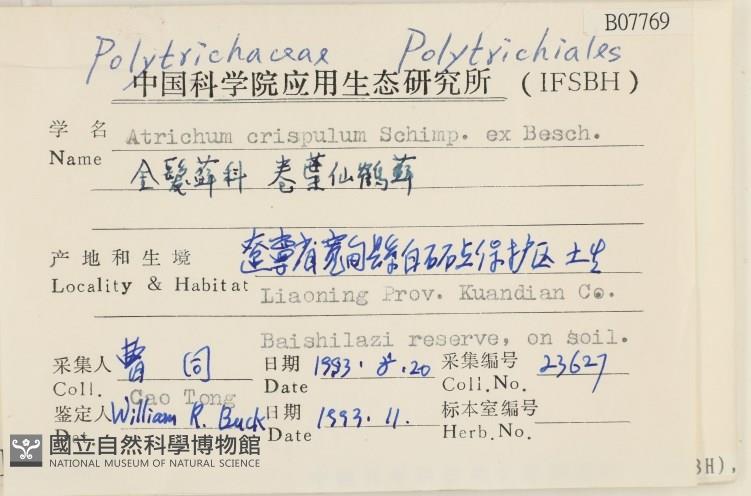 B07769
Polytrichaceae Polytrichiales
中国科学院应用生态研究所 (IFSBH)
学名 Atrichum crispulum Schimp. ex Besch.
Name
金髮蘚科 卷葉仙鶴蘚
产地和生境 遼寧省寬甸縣白石砬保护区 土生
Locality & Habitat Liaoning Prov. Kuandian Co.
Baishilazi reserve, on soil.
采集人 曹同 日期 1993.8.20 采集编号 23627
Coll. Cao Tong Date Coll.No.
鉴定人 William R. Buck 日期 1993.11. 标本室编号
Det. Date Herb.No.
國立自然科學博物館
NATIONAL MUSEUM OF NATURAL SCIENCE
BH),